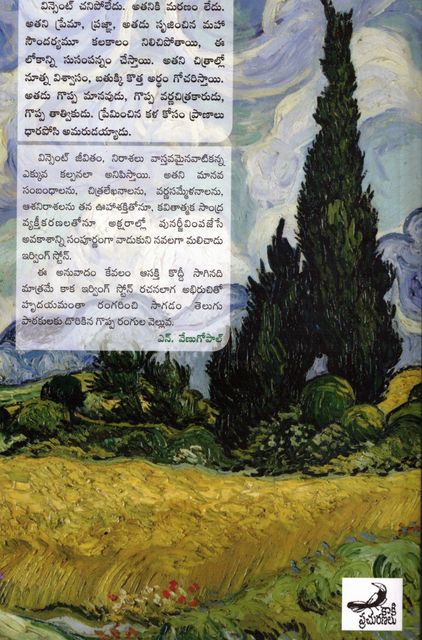 విన్సెంట్ చనిపోలేదు. అతనికి మరణం లేదు.
అతని ప్రేమా, ప్రజ్ఞా, అతడు సృజించిన మహా
సౌందర్యమూ కలకాలం నిలిచిపోతాయి, ఈ
లోకాన్ని సుసంపన్నం చేస్తాయి. అతని చిత్రాల్లో
నూత్న విశ్వాసం, బతుక్కి కొత్త అర్థం గోచరిస్తాయి.
అతడు గొప్ప మానవుడు, గొప్ప వర్ణచిత్రకారుడు,
గొప్ప తాత్వికుడు. ప్రేమించిన కళ కోసం ప్రాణాలు
ధారపోసి అమరుడయ్యాడు.
విన్సెంట్ జీవితం, నిరాశలు వాస్తవమైనవాటికన్న
ఎక్కువ కల్పనలా అనిపిస్తాయి. అతని మానవ
సంబంధాలను, చిత్రలేఖనాలను, వర్ణసమ్మేళనాలను,
ఆశనిరాశలను తన ఊహాశక్తితోనూ, కవితాత్మక సాంద్ర
వ్యక్తీకరణలతోనూ అక్షరాల్లో పునర్జీవింపజేసే
అవకాశాన్ని సంపూర్ణంగా వాడుకుని నవలగా మలిచాడు
ఇర్వింగ్ స్టోన్.
ఈ అనువాదం కేవలం ఆసక్తి కొద్దీ సాగినది
మాత్రమే కాక ఇర్వింగ్ స్టోన్ రచనలాగ అభిరుచితో
హృదయమంతా రంగరించి సాగడం తెలుగు
పాఠకులకు దొరికిన గొప్ప రంగుల వెల్లువ.
ఎన్. వేణుగోపాల్
కాకి
ప్రచురణలు